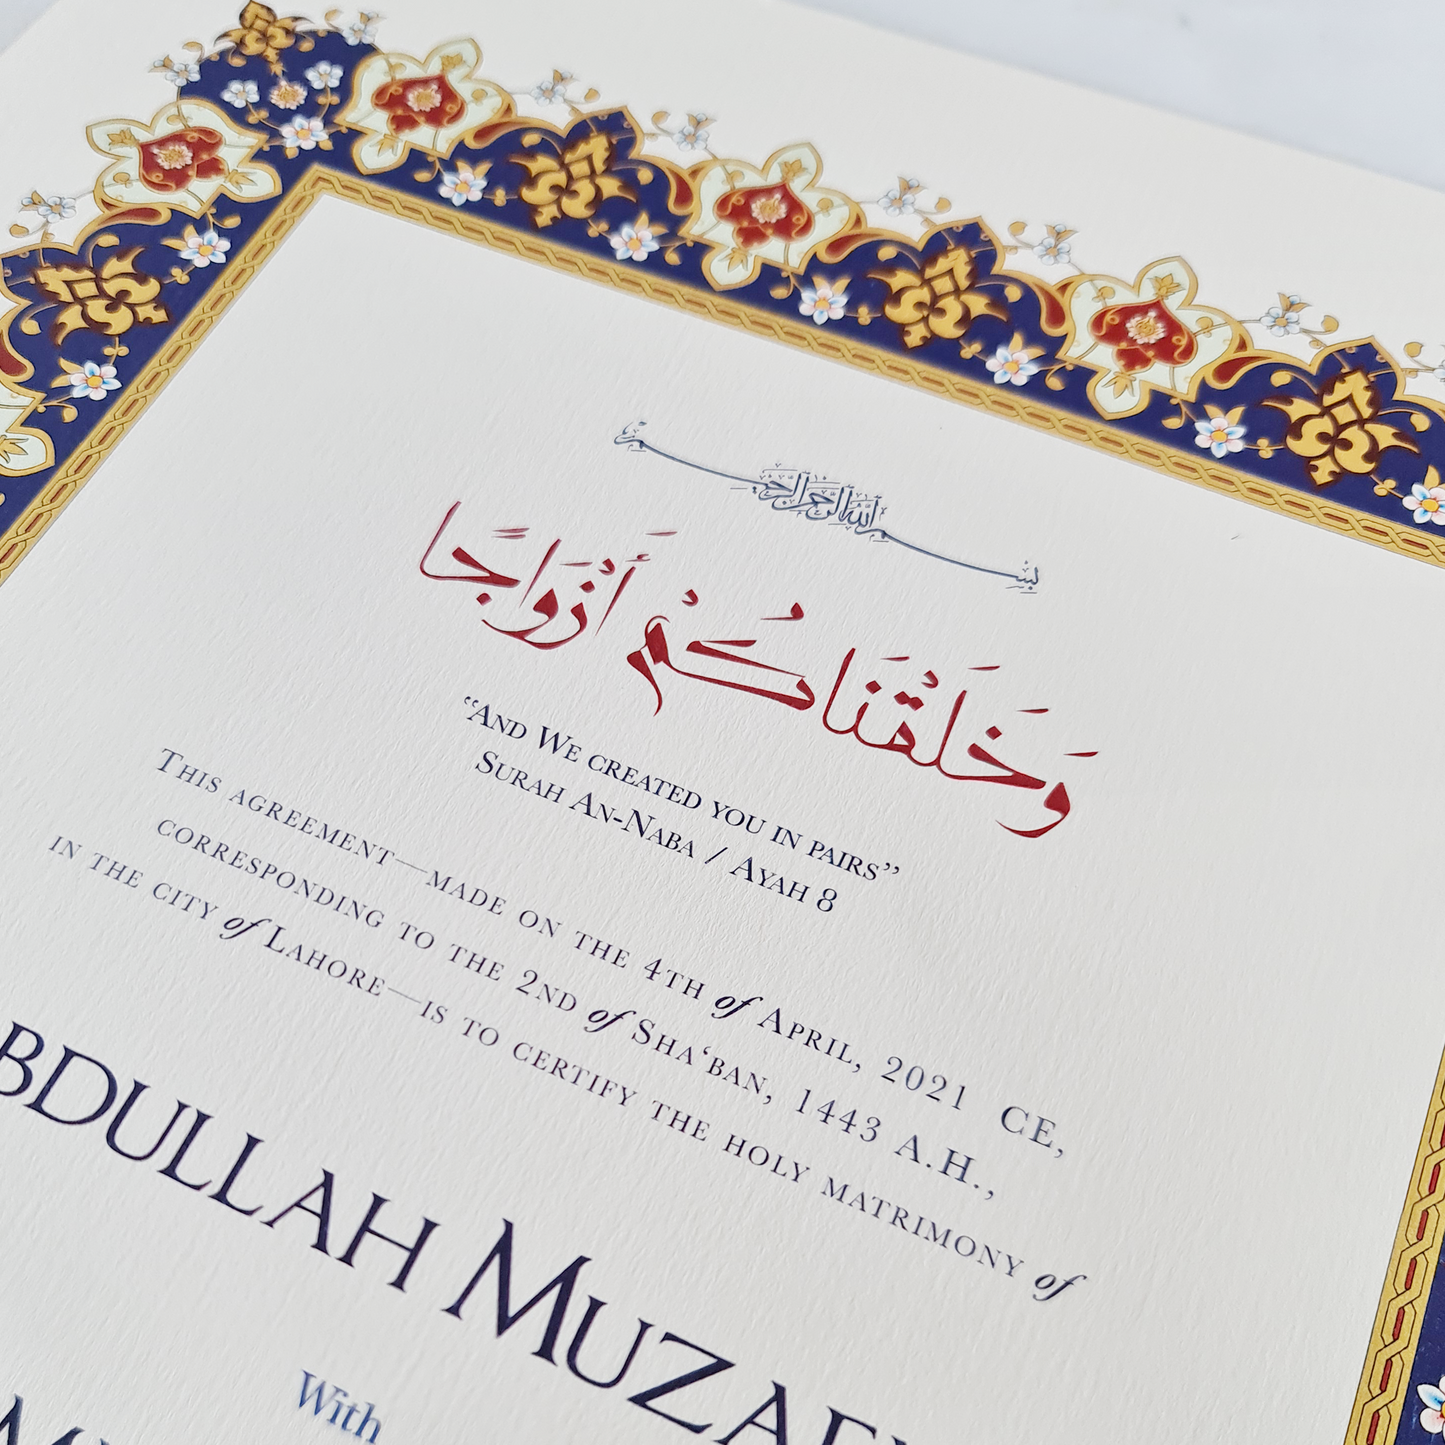 بِسْمِ اللهِ الرَّحْمٰنِ الرَّحِيْمِ
وَخَلَقْنَاكُمْ أَزْوَاجًا
“And We created you in pairs”
Surah An-Naba / Ayah 8
This agreement—made on the 4th of April, 2021 CE,
corresponding to the 2nd of Sha‘ban, 1443 A.H.,
in the city of Lahore—is to certify the holy matrimony of
BDULLAH MUZAF
With